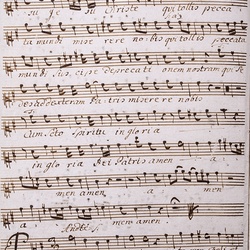 su Christe qui tollis pecca
ta mundi mise rere no bis qui tollis peccata
mundi sus ci pe deprecati onem nostram qui se
des ad dexteram Pa tris misere re nobis
Cum Sct̄o Spiritu in gloria
in glo ria Dei Patris amen a
men amen a men
a men amen